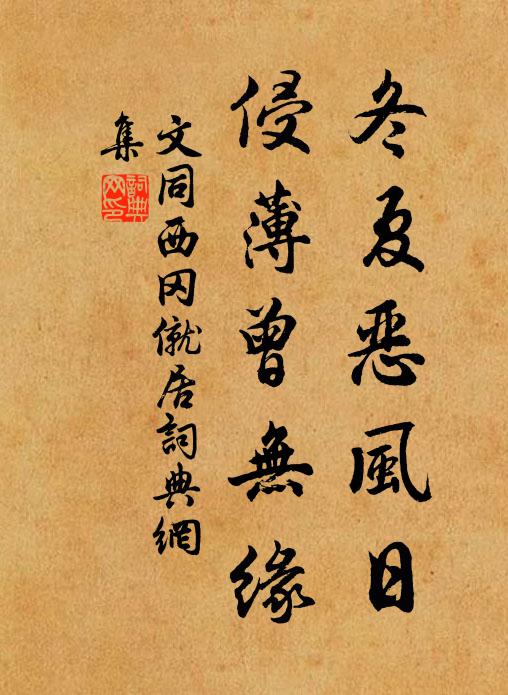 冬夏恶風日
侵薄曾無緣
文同西冈僦居詞典網
集
詞典
网印